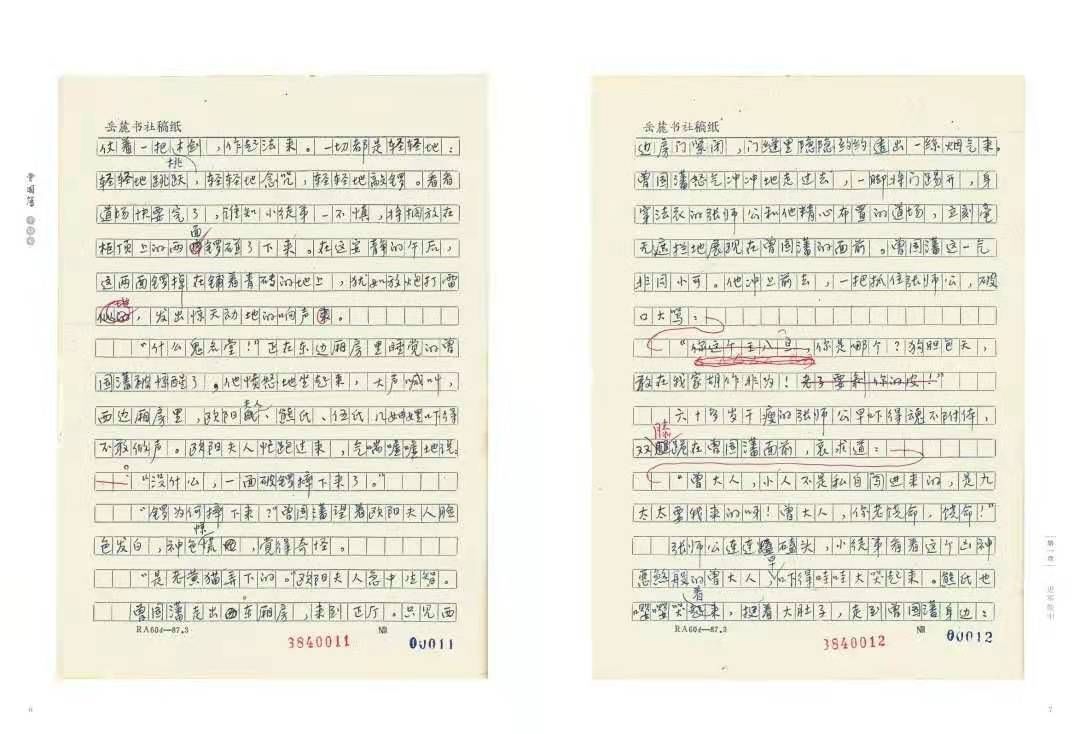 岳麓书社稿纸
仗着一把木剑，作起法来。一切都是轻轻地：
桃
轻轻地跳跃，轻轻地念咒，轻轻地敲锣。看看
道场快要完了，谁知小徒弟一不慎，将搁放在
面
柜顶上的两锣碰了下来。在这安静的午后，
这两面锣掉在铺着青砖的地上，犹如放炮打雷
，发出惊天动地的响声来。
“什么鬼名堂！”正在东边厢房里睡觉的曾
国藩被惊醒了，他愤怒地坐起来，大声喊叫，
夫人
西边厢房里，欧阳氏、熊氏、伍氏几妯娌吓得
不敢做声。欧阳夫人忙跑过来，气喘嘘嘘地说
“没什么，一面破锣摔下来了。”
“锣为何摔下来？”曾国藩望着欧阳夫人脸
惊
色发白，神色慌，觉得奇怪。
“是老黄猫弄下的。”欧阳夫人急中生智。
曾国藩走出东厢房，来到正厅。只见西
RA601—87.3
№
3840011
00011
岳麓书社稿纸
边房门紧闭，门缝里隐隐约约透出一线烟气来。
曾国藩怒气冲冲地走过去，一脚将门踢开，身
穿法衣的张师公和他精心布置的道场，立刻毫
无遮拦地展现在曾国藩的面前。曾国藩这一气
非同小可。他冲上前去，一把抓住张师公，破
口大骂：
“你这个王八蛋，你是哪个？狗胆包天，
敢在我家胡作非为！老子要剥你的皮！”
六十多岁干瘦的张师公早吓得魂不附体，
膝
双腿跪在曾国藩面前，哀求道：
“曾大人，小人不是私自闯进来的，是九
太太要我来的呀！曾大人，你老饶命，饶命！”
张师公连连磕头，小徒弟看着这个凶神
早
恶煞般的曾大人，吓得哇哇大哭起来。熊氏也
着
嘤嘤哭起来，挺着大肚子，走到曾国藩身边：
RA601—87.3
№
3840012
00012
曾国藩
第一章
6
7